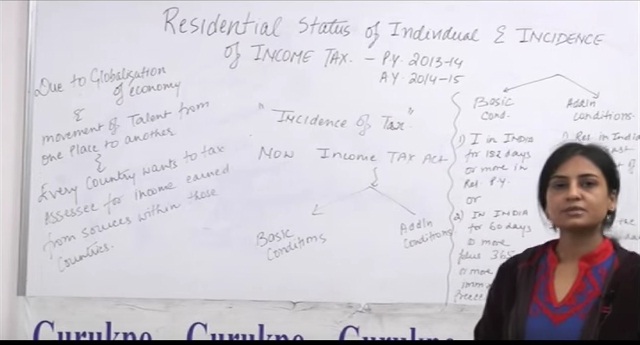 Residential Status of Individual & INCIDENCE
of INCOME TAX. - P.Y. 2013-14
A.Y. 2014-15
Due to Globalization
of economy
&
movement of Talent from
one Place to another
&
Every Country wants to tax
Assessee for Income earned
from sources within those
Countries.
"Incidence of Tax"
Now Income TAX Act
Basic
Conditions
Addln
Conditions
Basic
Cond.
Addln
Conditions.
1) I in INDIA
for 182 days
or more in
Rel. P.Y.
or
2) IN INDIA
for 60 days
or more
plus 365
or more
Res. in India
the
days,
Gurukpo Gurukpo Gurukpo